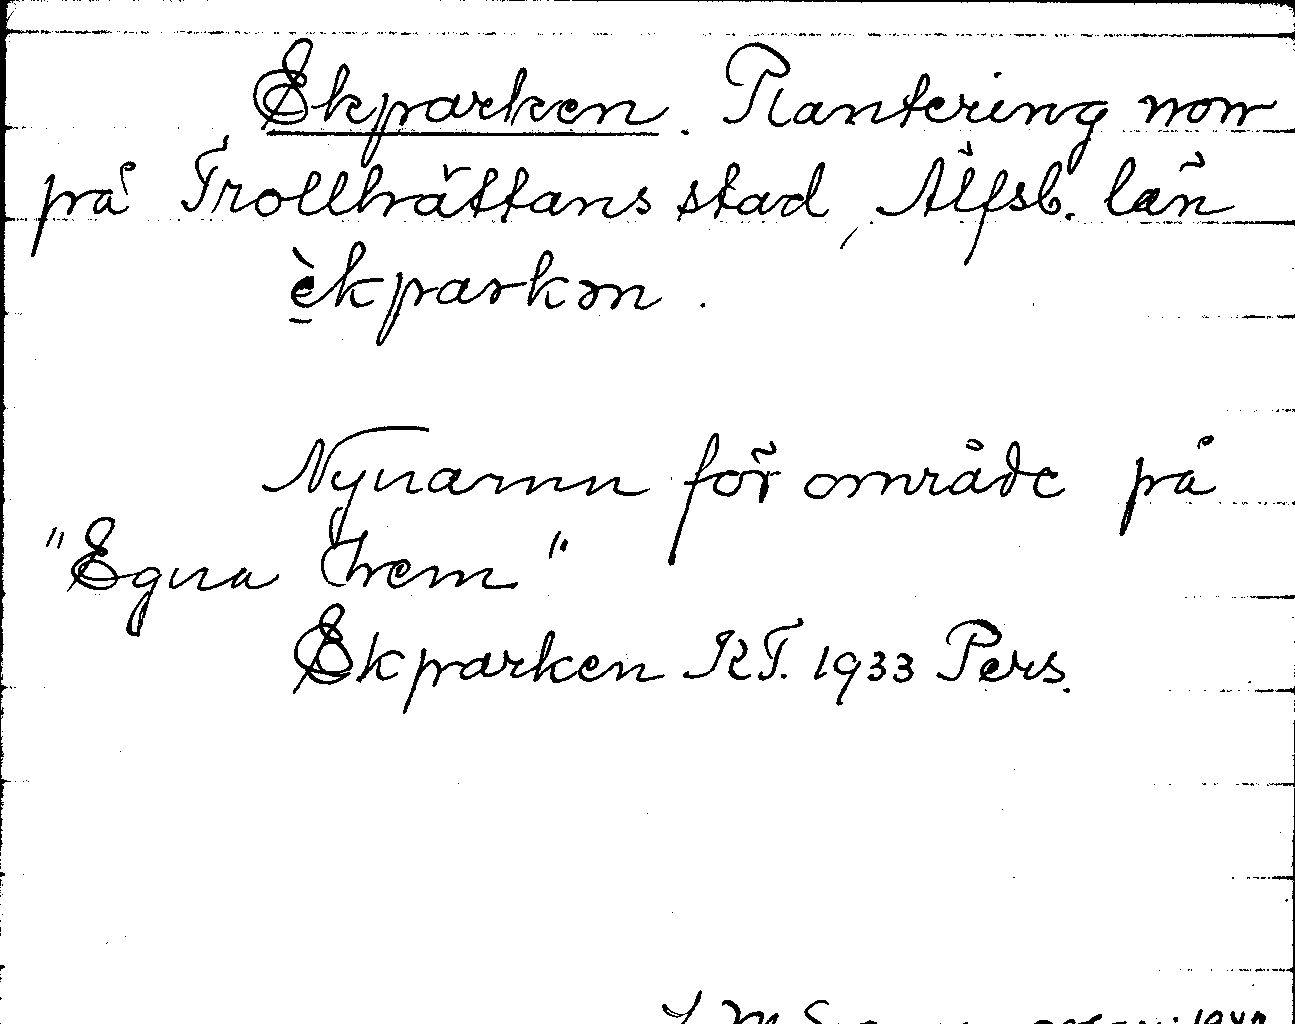 Ekparken. Plantering norr
på Trollhättans stad, Älfsb. län
èkparkən.
Nynamn för område på
"Egna hem"
Ekparken KT. 1933 Pers.